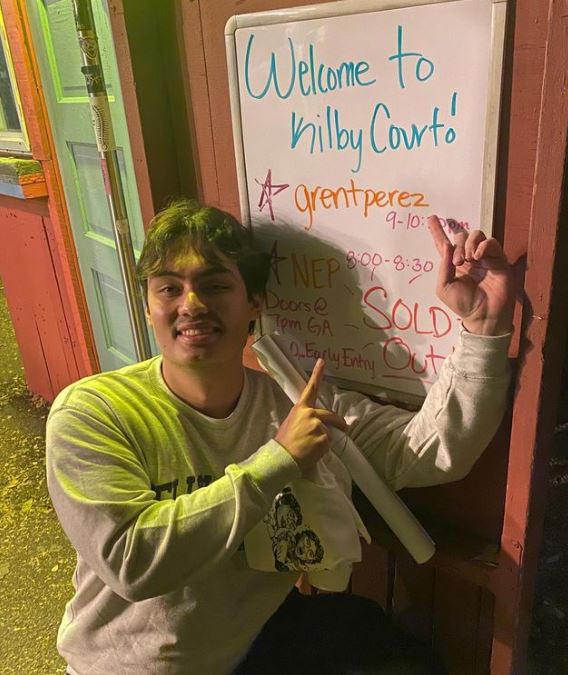 Welcome to
Kilby Court!
grentperez
9-10:30pm
NEP 8:00-8:30
Doors@
7pm GA
SOLD
Early Entry
Out